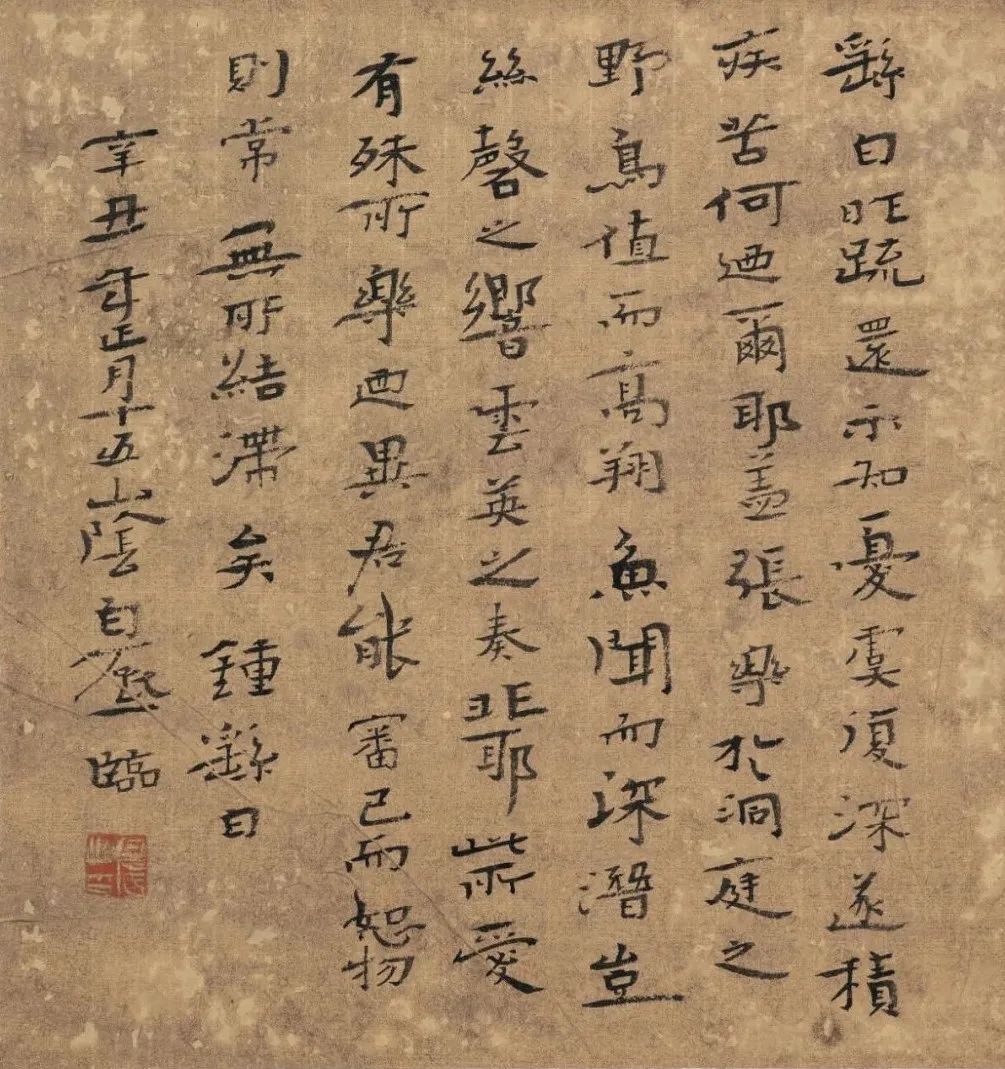 繇白昨疏還示知憂虞復深遂積
疾苦何迺爾耶盖張樂於洞庭之
野鳥值而高翔魚聞而深潛豈
絲磬之響雲英之奏非耶此所愛
有殊所樂迺異君能審己而恕物
則常無所結滯矣鍾繇白
辛丑年正月十五山陰臨